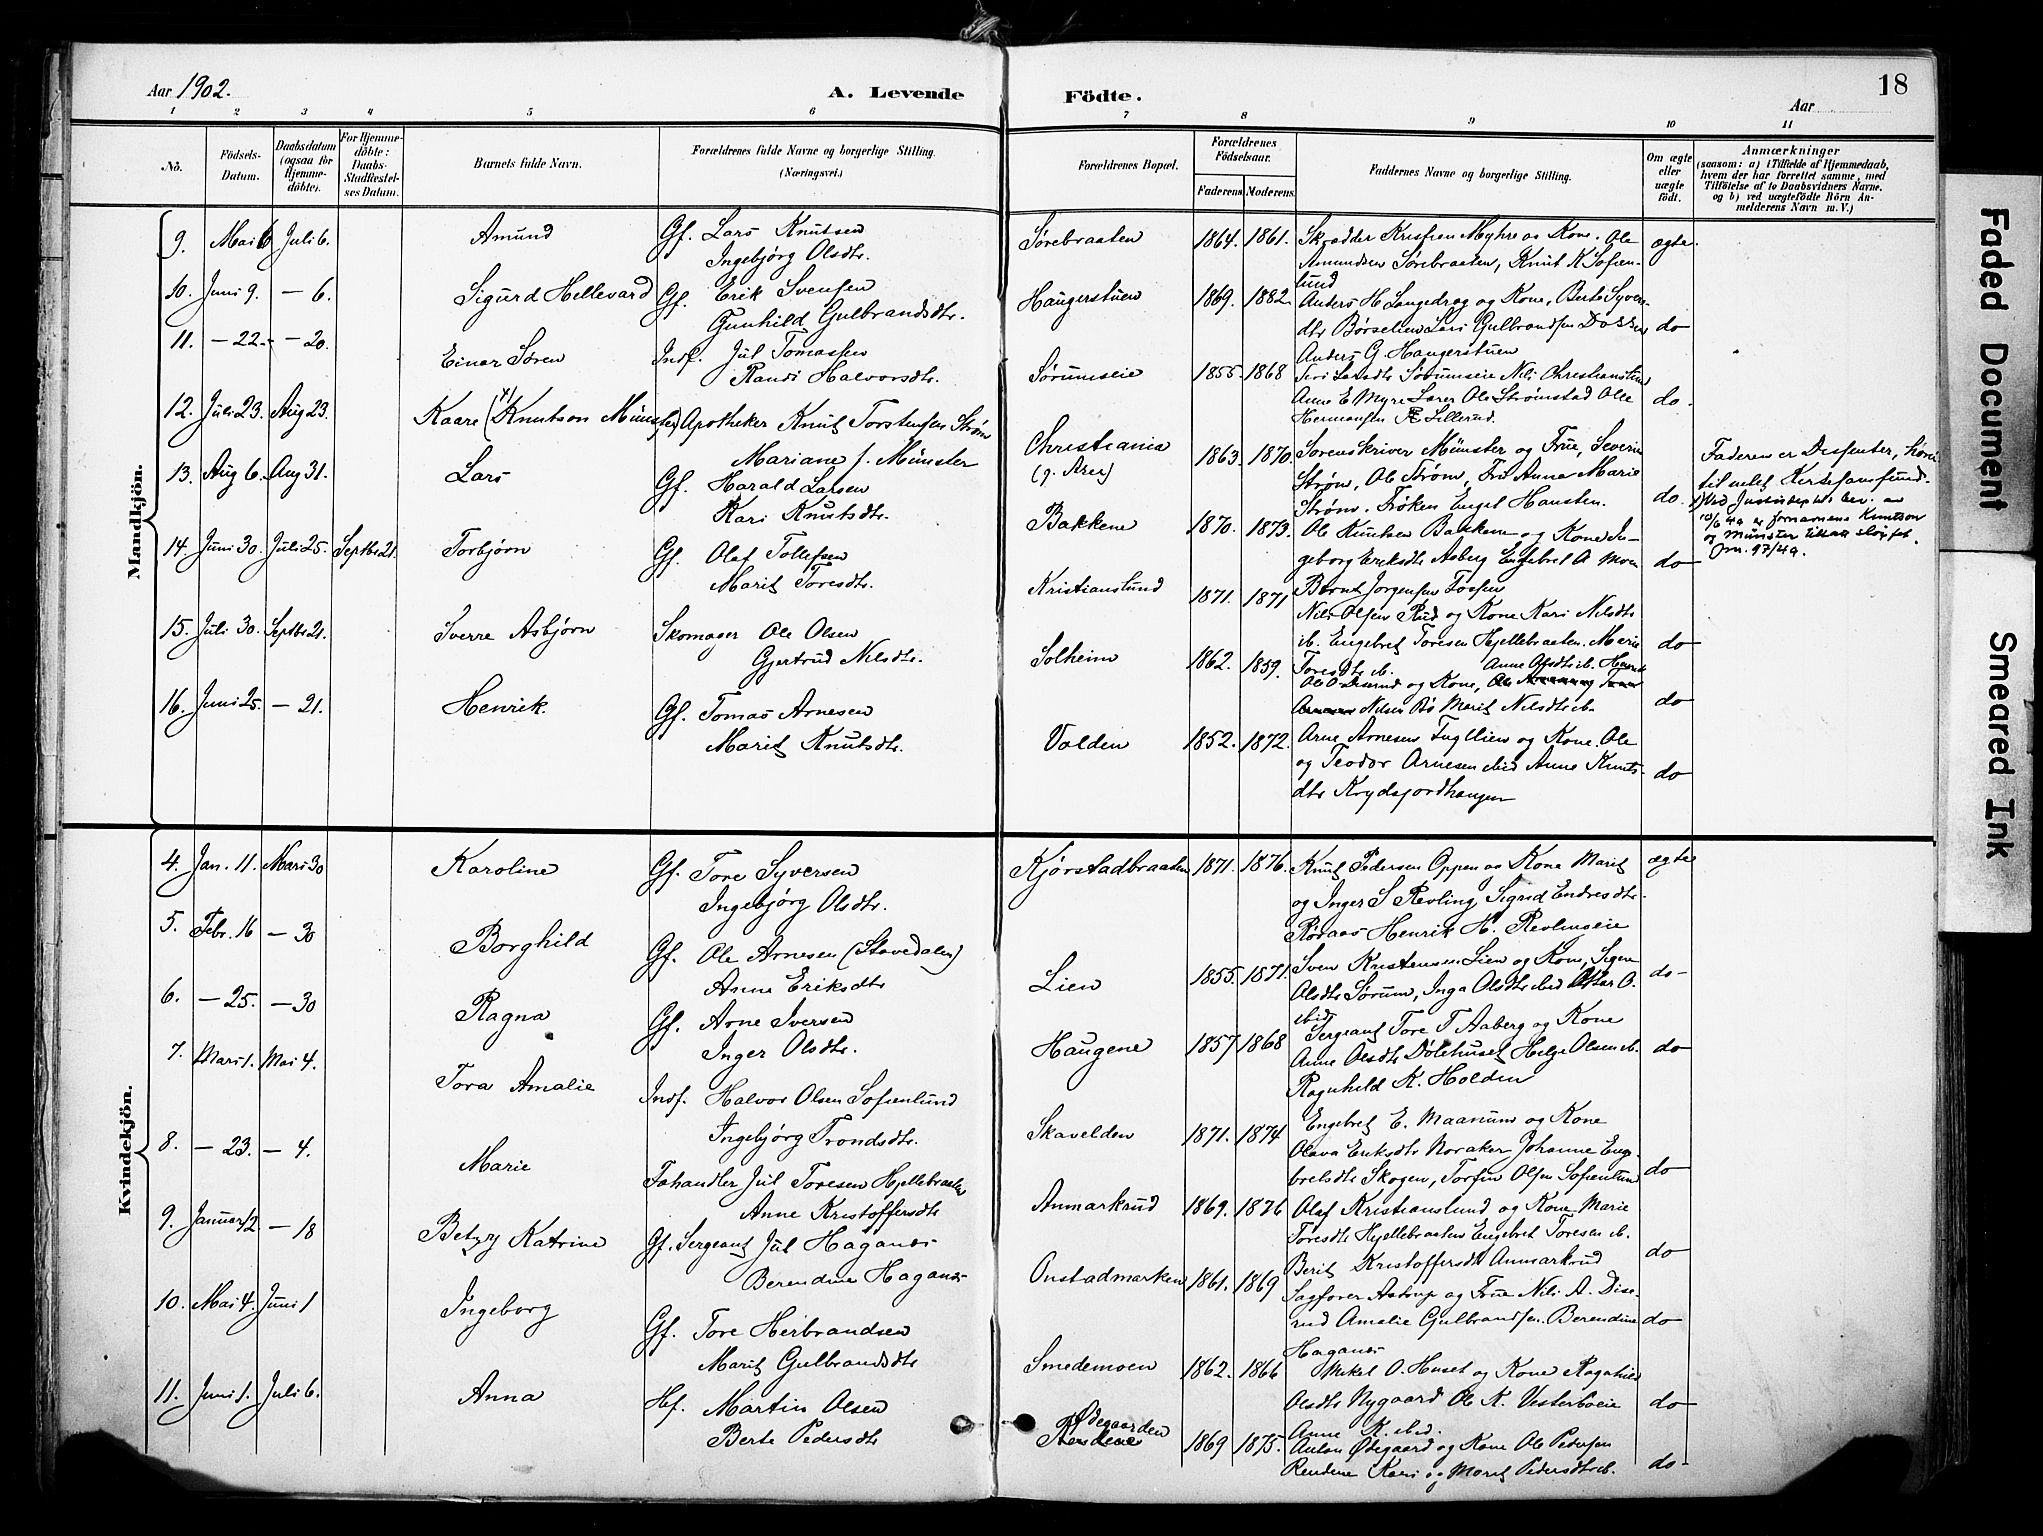 Aar 1902.
A. Levende Fødte.
Aar
18
1 2 3 4 5 6 7 8 9 10 11
No.
Födsels-Datum.
Daabsdatum (ogsaa for Hjemme-döbte).
For Hjemme-döbte: Daabs-Stadfæstel-ses Datum.
Barnets fulde Navn.
Forældrenes fulde Navne og borgerlige Stilling.
(Næringsvei.)
Forældrenes Bopæl.
Forældrenes Födselsaar.
Faderens Moderens.
Faddernes Navne og borgerlige Stilling.
Om ægte eller uægte födt.
Anmærkninger
(saasom: a) i Tilfælde af Hjemmedaab,
hvem der har forrettet samme, med
Tilföielse af to Daabsvidners Navne.
og b) ved uægtefödte Börn An-
melderens Navn m. V.)
Mandkjön.
9. Mai 6 Juli 6. Amund Gf. Lars Knutsen
Ingebjørg Olsdtr.
Sørebraaten 1864. 1861. Skrædder Kristian Myhre og Kone. Ole
Amundsen Sørebraaten, Knut K Sofien-
lund
ægte
10. Juni 9. — 6. Sigurd Hellevard Gf. Erik Svensen
Gunhild Gulbrandsdtr.
Haugerstuen 1869. 1882. Anders H Langedrag og Kone, Berte Syver-
dtr Børselien Lars Gulbrandsen Dokken
Anders G. Haugerstuen
do
11. — 22. — 20. Einar Søren Inds. Jul Tomassen
Randi Halvorsdtr.
Sørumseie 1855 1868 Siri Larsdtr Sørumseie Nils Christianslund
Anne E Myre Lærer Ole Strømstad Ole
Hermansen Sillerud.
do.
12. Juli 23. Aug 23. Kaare (Knutson Münster) Apotheker Knut Torstensen Strøm
Mariane f. Münster
Christiania
(g. Aker)
1863. 1870. Sorenskriver Münster og Frue, Severin
Strøm, Ole Strøm, Fru Anna Marie
Strøm. Frøken Engel Hansten.
do.
Faderen er Dissenter, hører
til
Ved Justisdeptets bev. av
10/6 49 er fornavnene Knutson
og Münster tillatt sløifet.
Jm. 97/49.
13. Aug 6. Aug 31. Lars Gf. Harald Larsen
Kari Knutsdtr.
Bakkene 1870. 1873. Ole Knutsen Bakkene og Kone In-
geborg Eriksdtr Aaberg Engebret A Moen
Bernt Jorgensen Fossen
do
14. Juni 30. Juli 25. Septbr 21. Torbjørn Gf. Olaf Tollefsen
Marit Toresdtr.
Kristianslund 1871. 1871 Nils Olsen Rud og Kone Kari Nilsdtr
ib. Engebret Toresen Hjellebraaten. Marie
Toresdtr ib.
do
15. Juli 30. Septbr 21. Sverre Asbjørn Skomager Ole Olsen
Gjertrud Nilsdtr.
Solheim 1862. 1859. Anne Olsdtr ib.
og Kone, Ole
Nilsen Bø Marit Nilsdtr ib.
do
16. Juni 25. — 21. Henrik Gf. Tomas Arnesen
Marit Knutsdtr.
Volden 1852. 1872. Arne Arnesen Fugllien og Kone. Ole
og Teodor Arnesen ibid Anne Knuts-
dtr Krydsjordhaugen
do
Kvindekjön.
4. Jan. 11. Mars 30 Karoline Gf. Tore Syversen
Ingebjørg Olsdtr.
Kjørstadbraaten 1871. 1876. Knut Pedersen Oppen og Kone Marit
og Inger S Revling Sigrid Endresdtr.
Rødaas Henrik H. Revlinseie
ægte
5. Febr. 16 — 30 Borghild Gf. Ole Arnesen (Stavedalen)
Anne Eriksdtr
Lien 1855. 1871. Sven Kristensen Lien og Kone, Signe
Olsdtr Sørum, Inga Olsdtr ibid Oskar O.
ibid
do-
6. — 25. — 30 Ragna Gf. Arne Iversen
Inger Olsdtr.
Haugene 1857 1868 Sergeant Tore T Aaberg og Kone
Anne Olsdtr Dølehuset Helge Olsen ib.
Ragnhild K. Holden
do
7. Mars 1. Mai 4. Tora Amalie Inds. Halvor Olsen Sofienlund
Ingebjørg Trondsdtr.
Skavelden 1871. 1874 Engebret E. Maarum og Kone
Olava Eriksdtr Noraker Johanne Enge-
bretsdtr Skogen, Torfin Olsen Sofienlund
do
8. — 23. — 4. Marie Fæhandler Jul Toresen Hjellebraaten
Anne Kristoffersdtr
Anmarkrud 1869. 1876 Olaf Kristianslund og Kone Marie
Toresdtr Hjellebraaten Engebret Toresen ib.
Berit Kristoffersdtr Anmarkrud
do
9. Januar 12 — 18 Betzy Katrine Gf. Sergeant Jul Haganæs
Berendine Haganæs
Onstadmarken 1861. 1869 Sagfører Aatrup og Frue Nils A. Dise-
rud Amalie Gulbrandsen Berendine
Haganæs
do
10. Mai 4. Juni 1 Ingeborg Gf. Tore Herbrandsen
Marit Gulbrandsdtr
Smedemoen 1862. 1866 Mikel O. Huset og Kone Ragnhild
Olsdtr Nygaard Ole K. Vesterboeie
Anne K. ibid.
do
11. Juni 1. Juli 6. Anna Hf. Martin Olsen
Berte Pedersdtr
Ødegaarden
1869 1875. Anton Ødegaard og Kone Ole Pedersen
Rendene Kari og Marit Pedersdtr ib.
do-
Faded Document
Smeared Ink